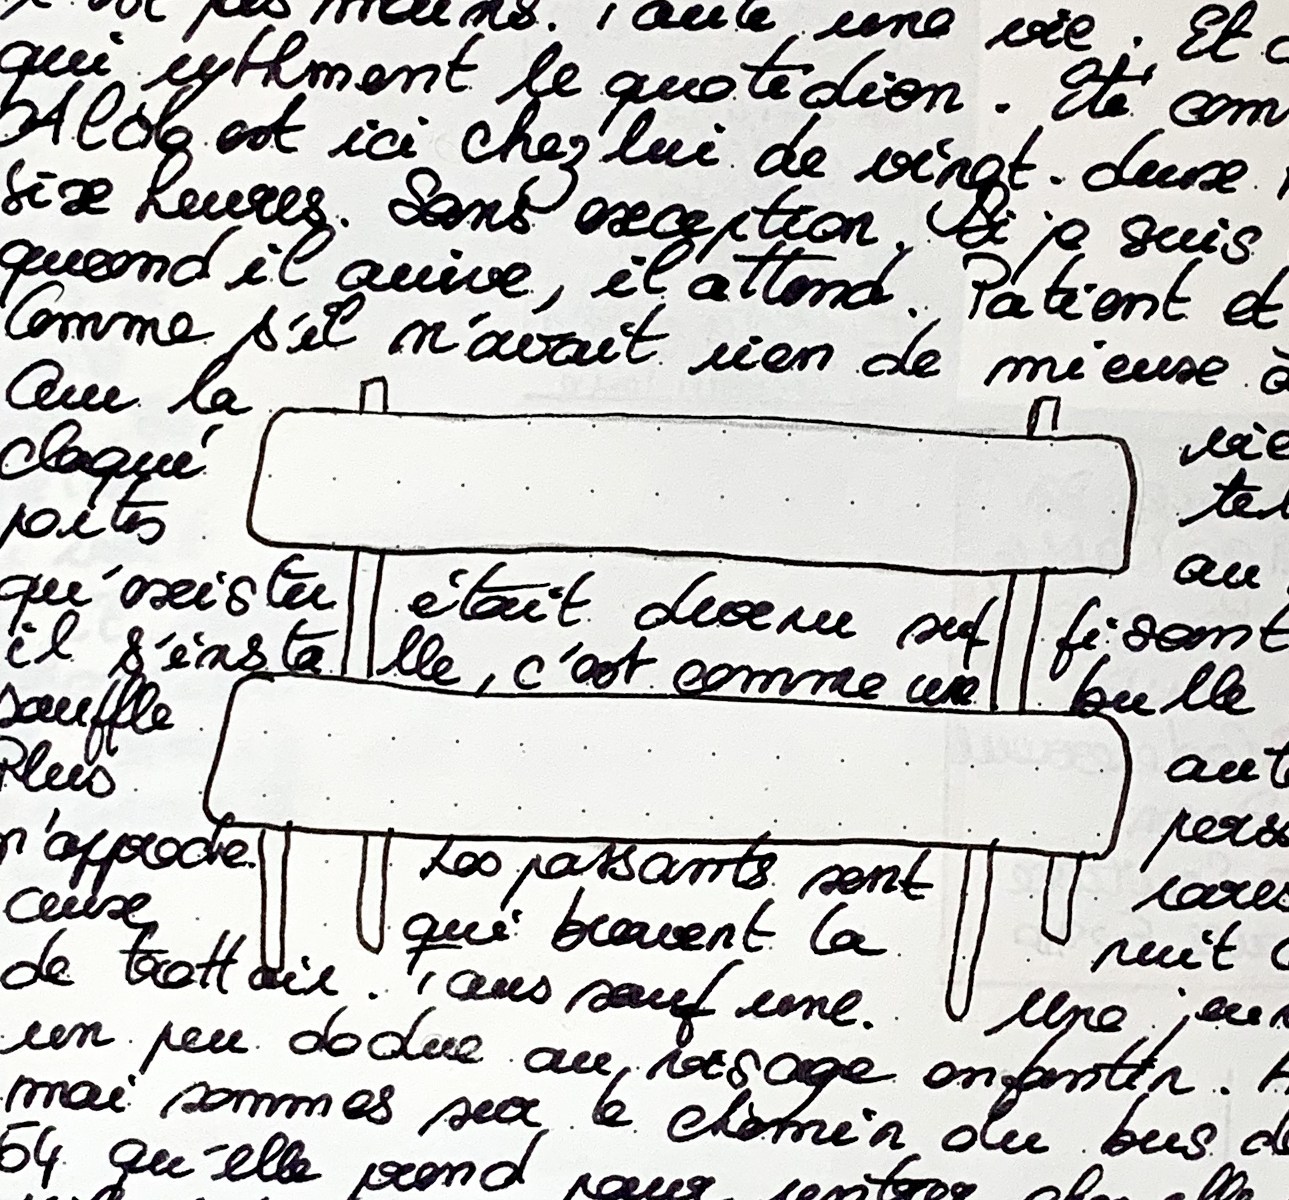 pas moins. Toute une vie. Et
qui rythment le quotidien. Eté com
est ici chez lui de vingt-deux
six heures. Sans exception. Si je suis
quand il arrive, il attend. Patient et
Comme s'il n'avait rien de mieux à
Que la vie
claqué ter
portes au
qu'exister était devenu suffisant
il s'installe, c'est comme une bulle
souffle
Plus aut
n'approche. Les passants sont perso
ceux qui bravent la rares
de trottoir. Tous sauf une. nuit
Une jeun
un peu dodue au visage enfantin. A
moi sommes sur le chemin du bus de
64 qu'elle prend pour rentrer chez elle